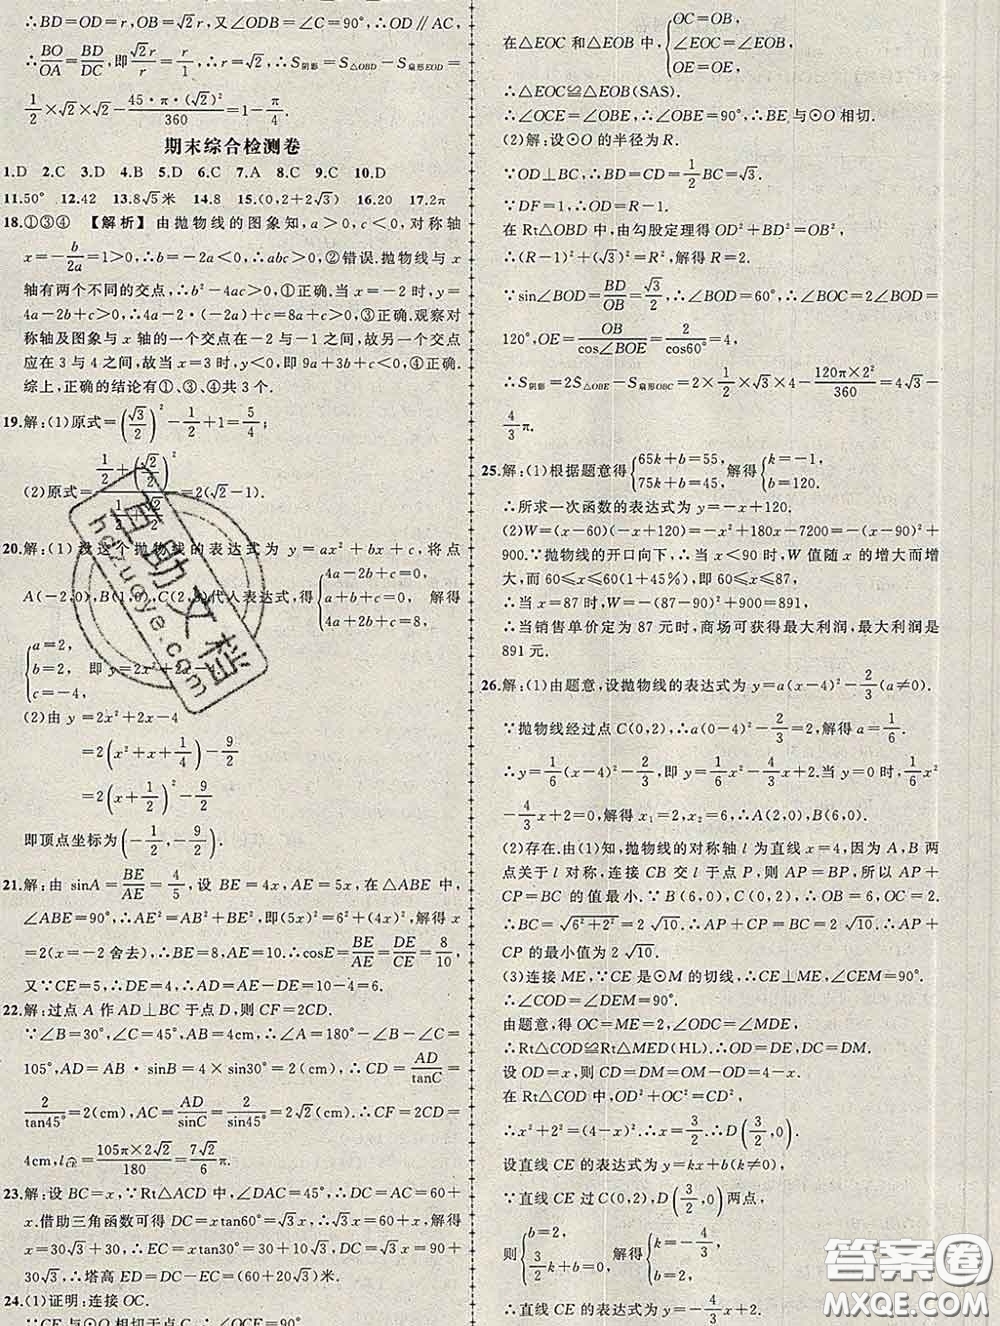 ∴BD=OD=r,OB=√2r,又∠ODB=∠C=90°,∴OD∥AC,
∴BO/OA=BD/DC,即√2r/r=r/1,∴r=√2,∴S阴影=S△OBD-S扇形EOD=
1/2×√2×√2-45·π·(√2)²/360=1-π/4.
期末综合检测卷
1.D 2.C 3.D 4.B 5.D 6.C 7.A 8.C 9.C 10.D
11.50° 12.42 13.8√5米 14.8 15.(0,2+2√3) 16.20 17.2π
18.①③④ 【解析】由抛物线的图象知,a>0,c<0,对称轴
x=-b/2a=1>0,∴b=-2a<0,∴abc>0,②错误.抛物线与x
轴有两个不同的交点,∴b²-4ac>0,①正确.当x=-2时,y=
4a-2b+c>0,∴4a-2·(-2a)+c=8a+c>0,③正确.观察对
称轴及图象与x轴的一个交点在-2与-1之间,故另一个交点
应在3与4之间,故当x=3时,y<0,即9a+3b+c<0,④正确.
综上,正确的结论有①、③、④共3个.
19.解:(1)原式=(√3/2)²-1/2+1=5/4;
(2)原式= =2(√2-1).
20.解:(1)设这个抛物线的表达式为y=ax²+bx+c,将点
A(-2,0),B(1,0),C(2,8)代入表达式,得{4a-2b+c=0, a+b+c=0, 4a+2b+c=8, 解得
{a=2, b=2, c=-4, 即y=2x²+2x-4.
(2)由y=2x²+2x-4
=2(x²+x+1/4)-9/2
=2(x+1/2)²-9/2
即顶点坐标为(-1/2,-9/2).
21.解:由sinA=BE/AE=4/5,设BE=4x,AE=5x,在△ABE中,
∠ABE=90°,∴AE²=AB²+BE²,即(5x)²=6²+(4x)²,解得x
=2(x=-2舍去),∴BE=8,AE=10.∴cosE=BE/AE=DE/CE=8/10,
又∵CE=5,∴DE=4,∴AD=AE-DE=10-4=6.
22.解:过点A作AD⊥BC于点D,则CF=2CD.
∵∠B=30°,∠C=45°,AB=4cm,∴∠A=180°-∠B-∠C=
105°,AD=AB·sinB=4×sin30°=2(cm),∴CD=AD/tanC=
2/tan45°=2(cm),AC=AD/sinC=2/sin45°=2√2(cm),∴CF=2CD=
4cm,l=105π×2√2/180=7√2/6π.
23.解:设BC=x,∵Rt△ACD中,∠DAC=45°,∴DC=AC=60+
x.借助三角函数可得DC=xtan60°=√3x,∴√3x=60+x,解得
x=30√3+30,∴EC=xtan30°=30+10√3,DC=√3x=90+
30√3,∴塔高ED=DC-EC=60+20√3米.
24.(1)证明:连接OC.
∵CE与⊙O相切于点C,∴∠OCE=90°
在△EOC和△EOB中,{OC=OB, ∠EOC=∠EOB, OE=OE,
∴△EOC≌△EOB(SAS).
∴∠OCE=∠OBE,∴∠OBE=90°,∴BE与⊙O相切.
(2)解:设⊙O的半径为R.
∵OD⊥BC,∴BD=CD=1/2BC=√3.
∵DF=1,∴OD=R-1.
在Rt△OBD中,由勾股定理得OD²+BD²=OB²,
∴(R-1)²+(√3)²=R²,解得R=2.
∵sin∠BOD=BD/OB=√3/2,∴∠BOD=60°,∴∠BOC=2∠BOD=
120°,OE=OB/cos∠BOE=2/cos60°=4.
∴S阴影=2S△OBE-S扇形OBC=2×1/2×√3×4-120π×2²/360=4√3-
4/3π.
25.解:(1)根据题意得{65k+b=55, 75k+b=45, 解得{k=-1, b=120.
∴所求一次函数的表达式为y=-x+120.
(2)W=(x-60)(-x+120)=-x²+180x-7200=-(x-90)²+
900.∵抛物线的开口向下,∴当x<90时,W值随x的增大而增
大,而60≤x≤60(1+45%),即60≤x≤87,
∴当x=87时,W=-(87-90)²+900=891,
∴当销售单价定为87元时,商场可获得最大利润,最大利润是
891元.
26.解:(1)由题意,设抛物线的表达式为y=a(x-4)²-2/3(a≠0).
∵抛物线经过点C(0,2),∴a(0-4)²-2/3=2,解得a=1/6.
∴y=1/6(x-4)²-2/3,即y=1/6x²-4/3x+2.当y=0时,1/6x²
-4/3x+2=0,解得x₁=2,x₂=6,∴A(2,0),B(6,0).
(2)存在.由(1)知,抛物线的对称轴l为直线x=4,因为A,B两
点关于l对称,连接CB交l于点P,则AP=BP,所以AP+
CP=BC的值最小.∵B(6,0),C(0,2),∴OB=6,OC=2,
∴BC=√(6²+2²)=2√10.∴AP+CP=BC=2√10.∴AP+CP
的最小值为2√10.
(3)连接ME,∵CE是⊙M的切线,∴CE⊥ME,∠CEM=90°.
∴∠COD=∠DEM=90°.
由题意,得OC=ME=2,∠ODC=∠MDE,
∴Rt△COD≌Rt△MED(HL).∴OD=DE,DC=DM.
设OD=x,则CD=DM=OM-OD=4-x.
在Rt△COD中,OD²+OC²=CD²,
∴x²+2²=(4-x)².∴x=3/2.∴D(3/2,0).
设直线CE的表达式为y=kx+b(k≠0),
∵直线CE过C(0,2),D(3/2,0)两点,
则{b=2, 3/2k+b=0. 解得{k=-4/3, b=2.
∴直线CE的表达式为y=-4/3x+2.
互助文档
hdzuoye.com
答案圈
MXQE.COM